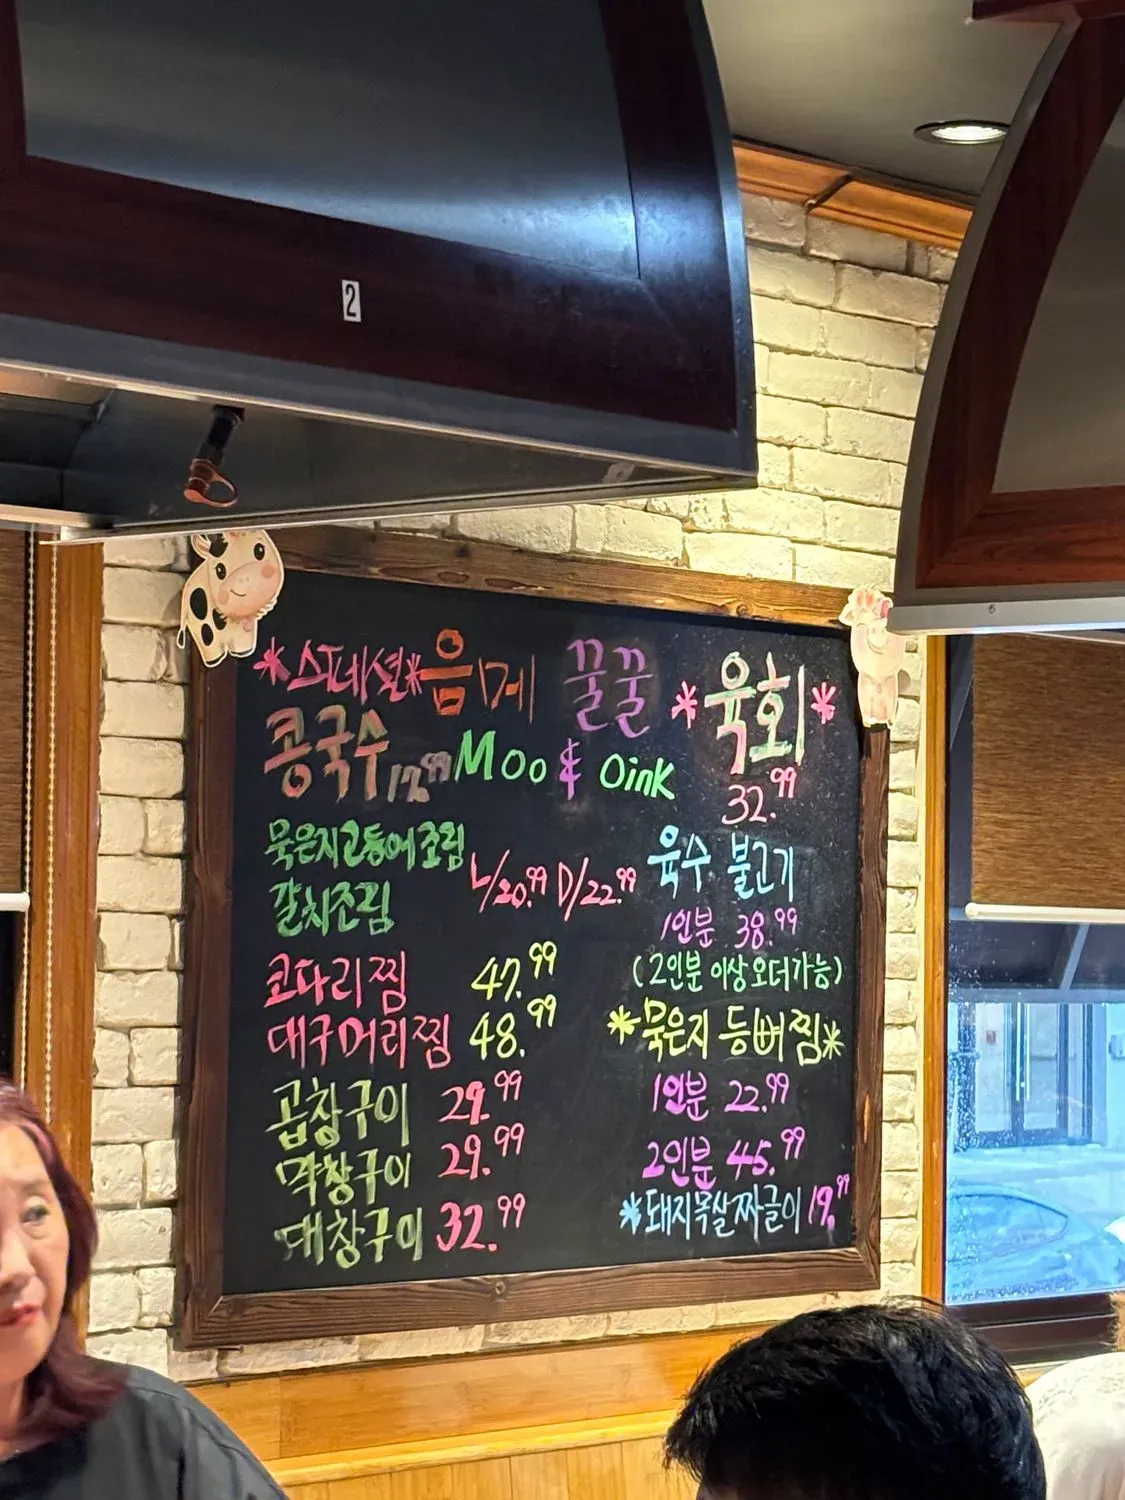 2
*스페셜* 음메 꿀꿀
콩국수 17.99 Moo & Oink
묵은지고등어조림
갈치조림
L/20.99 D/22.99
코다리찜 47.99
대구머리찜 48.99
곱창구이 29.99
막창구이 29.99
대창구이 32.99
*육회*
32.99
육수 불고기
1인분 38.99
(2인분 이상 오더가능)
*묵은지 등뼈찜*
1인분 22.99
2인분 45.99
*돼지목살짜글이 19.99